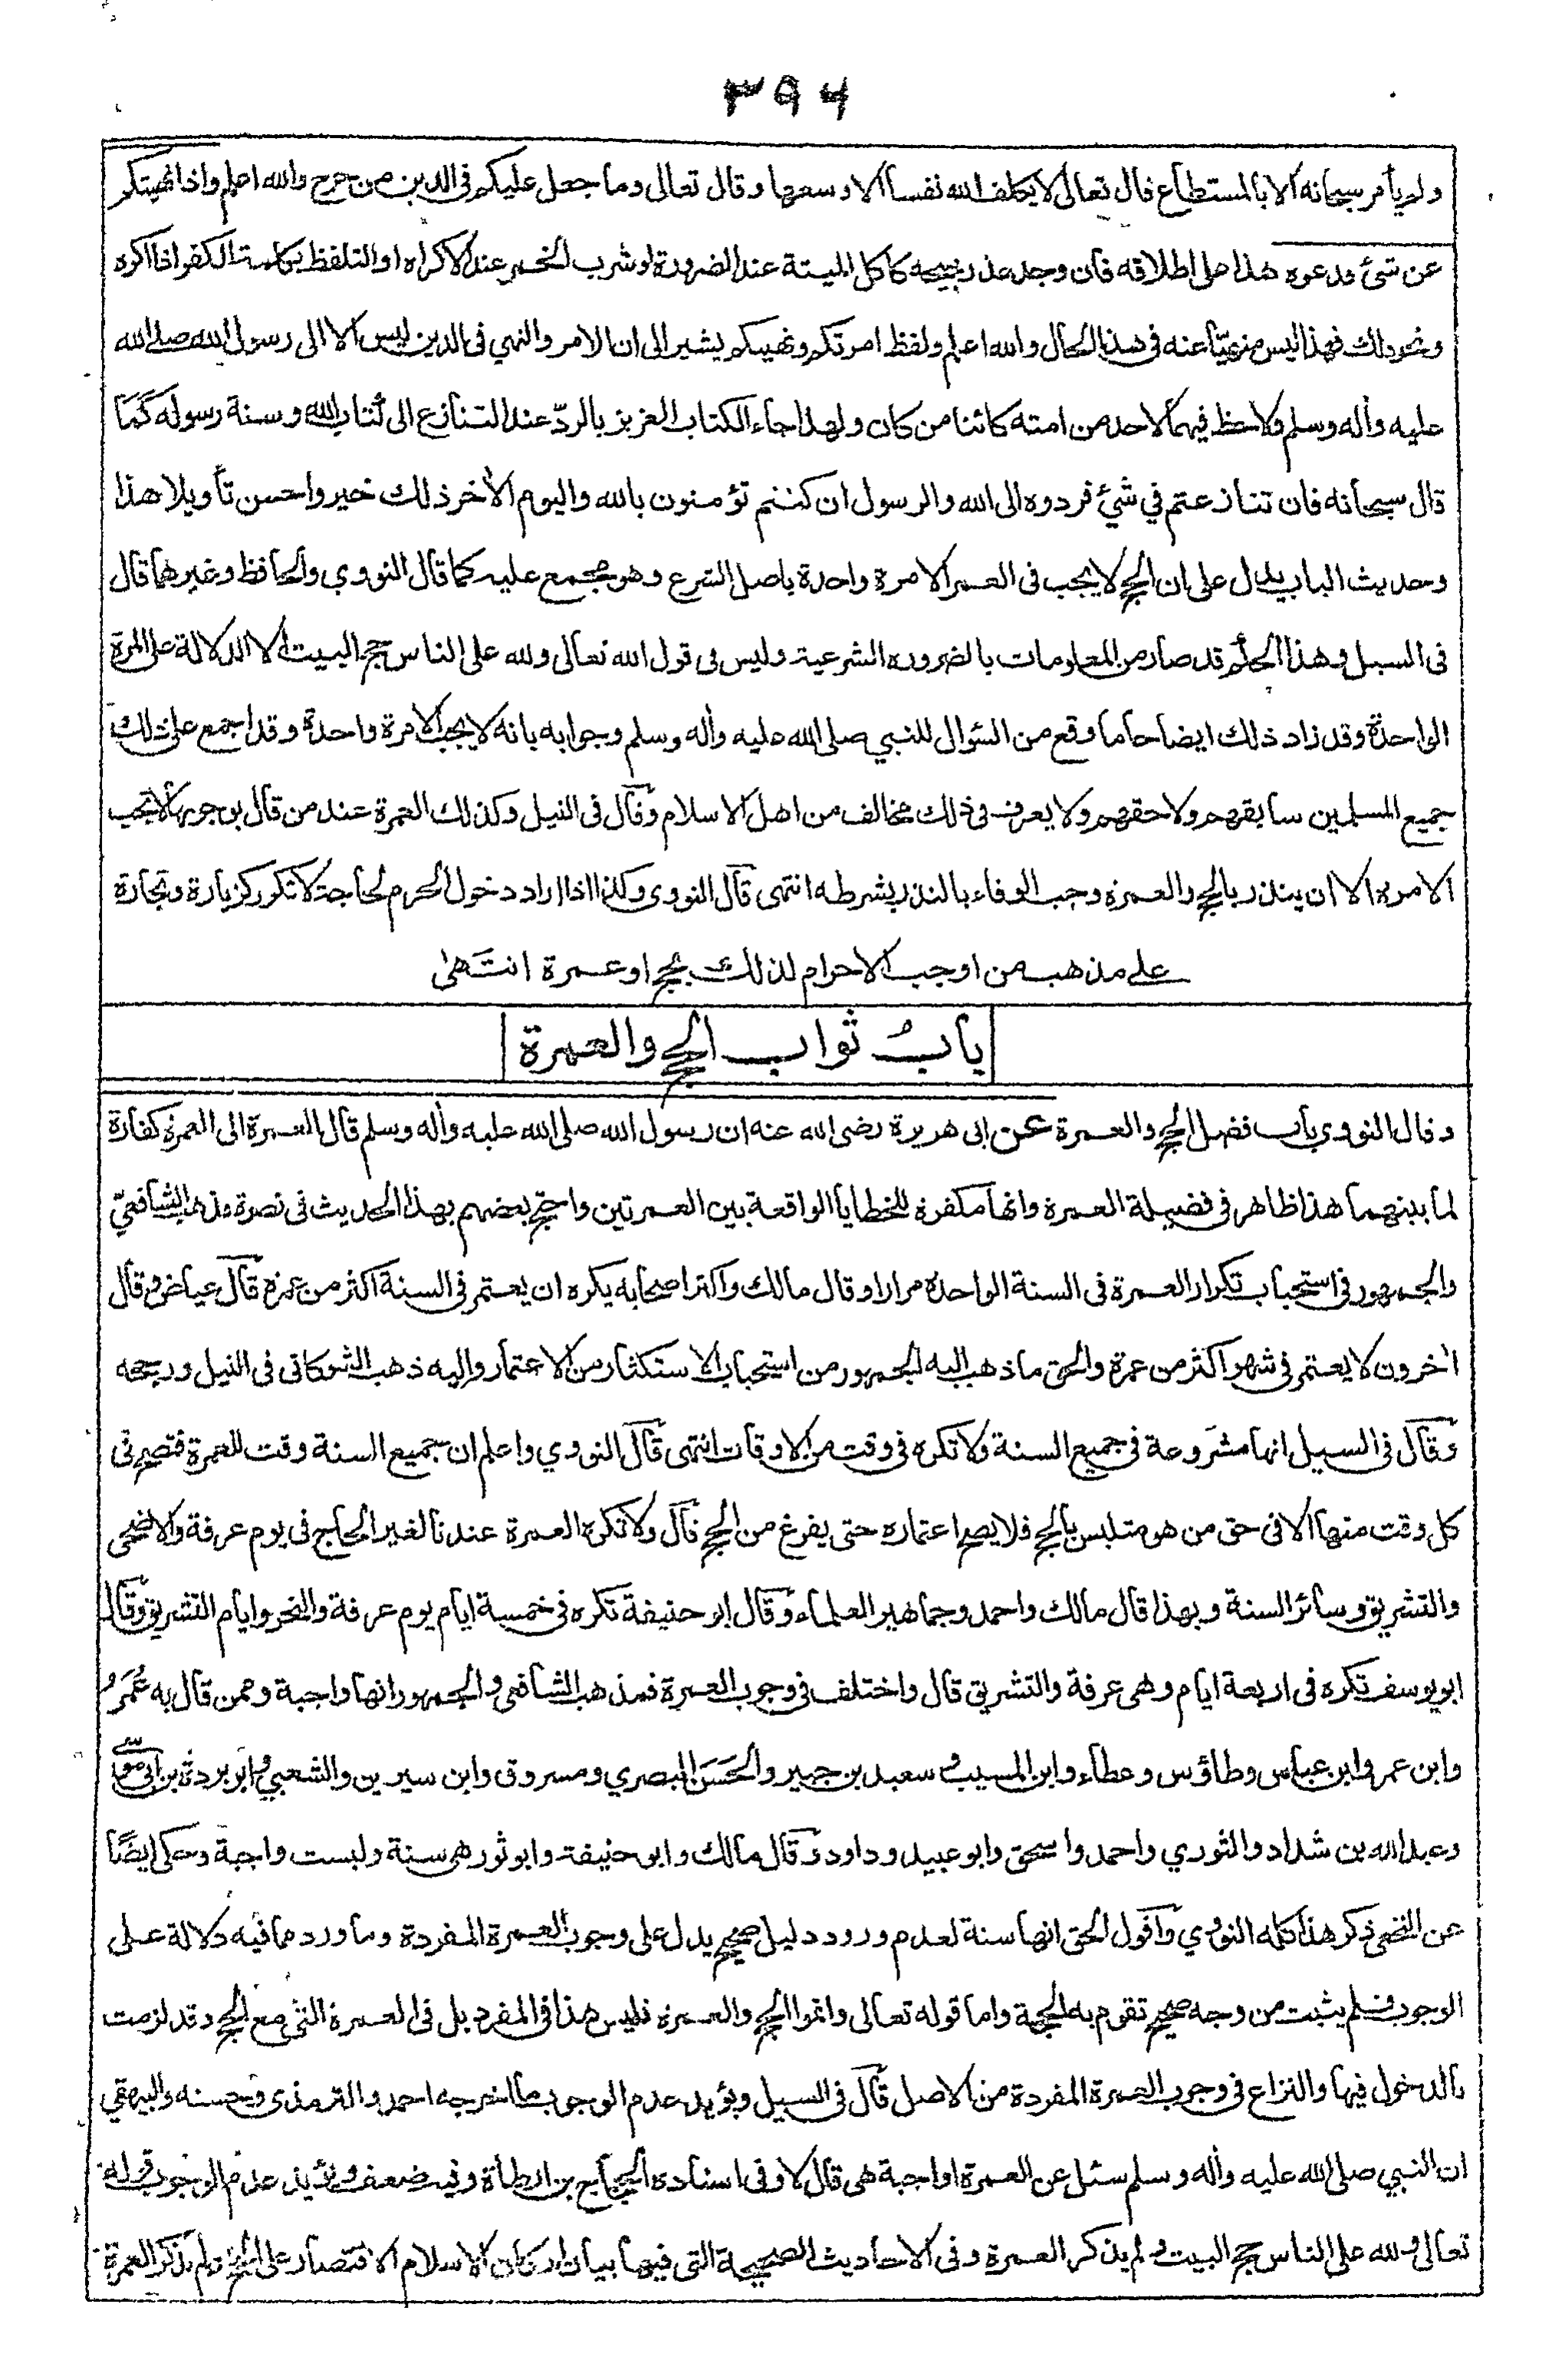 ٣٩٦
ولم يأمر سبحانه الا بالمستطاع قال تعالى لا يكلف الله نفسا الا وسعها وقال تعالى وما جعل عليكم فى الدين من حرج والله اعلم واذا نهيتكم
عن شئ فدعوه هذا على اطلاقه فان وجد عذر يبيحه كاكل الميتة عند الضرورة او شرب الخمر عند الاكراه او التلفظ بكلمة الكفر اذا اكره
ونحو ذلك فهذا ليس منهيّا عنه فى هذا الحال والله اعلم ولفظ امرتكم ونهيتكم يشير الى ان الامر والنهي فى الدين ليس الا الى رسول الله صلے الله
عليه وأله وسلم ولاحظ فيهما لاحد من امته كائنا من كان ولهذا جاء الكتاب العزيز بالردّ عند التنازع الى كتاب الله وسنة رسوله كَمَا
قال سبحانه فان تنازعتم في شئ فردوه الى الله والرسول ان كنتم تؤمنون بالله واليوم الأخر ذلك خير واحسن تأويلا هذا
وحديث الباب يدل على ان الحج لا يجب فى العمر الا مرة واحدة باصل الشرع وهو مجمع عليه كما قال النووي والحافظ وغيرهما قال
فى السبل وهذا الحكم قد صار من المعلومات بالضروره الشرعية وليس فى قول الله تعالى ولله على الناس حج البيت الا الدلالة على المرة
الواحدة وقد زاد ذلك ايضاحا ما وقع من السؤال للنبي صلى الله عليه وأله وسلم وجوابه بانه لا يجب الا مرة واحدة وقد اجمع على ذلك
جميع المسلمين سابقهم ولاحقهم ولا يعرف فى ذلك مخالف من اهل الاسلام وقال فى النيل وكذلك العمرة عند من قال بوجوبها لا تجب
الا مرة الا ان ينذر بالحج والعمرة وجب الوفاء بالنذر بشرطه انتهى قال النووى وكذا اذا اراد دخول الحرم لحاجة لا تكرر كزيارة وتجارة
على مذهب من اوجب الاحرام لذلك بحج او عمرة انتَهىٰ
بابُ ثواب الحج والعمرة
وقال النووي باب فضل الحج والعمرة عن ابى هريرة رضى الله عنه ان رسول الله صلى الله عليه وأله وسلم قال العمرة الى العمرة كفارة
لما بينهما هذا ظاهر فى فضيلة العمرة وانها مكفرة للخطايا الواقعة بين العمرتين واحتج بعضهم بهذا الحديث فى نصرة مذهب الشافعيّ
والجمهور فى استحباب تكرار العمرة فى السنة الواحدة مرارا وقال مالك واكثر اصحابه يكره ان يعتمر فى السنة اكثر من عمرة قال عياض وقال
أخرون لا يعتمر فى شهر اكثر من عمرة والحق ما ذهب اليه الجمهور من استحباب الاستكثار من الاعتمار واليه ذهب الشوكانى فى النيل ورجحه
وقال فى السيل انها مشروعة فى جميع السنة ولا تكره فى وقت من الاوقات انتهى قال النووي واعلم ان جميع السنة وقت للعمرة فتصح فى
كل وقت منها الا فى حق من هو متلبس بالحج فلا يصح اعتماره حتى يفرغ من الحج قال ولا تكره العمرة عندنا لغير الحاج فى يوم عرفة والاضحى
والتشريق وسائر السنة وبهذا قال مالك واحمد وجماهير العلماء وقال ابو حنيفة تكره فى خمسة ايام يوم عرفة والنحر وايام التشريق وقال
ابو يوسف تكره فى اربعة ايام وهى عرفة والتشريق قال واختلف فى وجوب العمرة فمذهب الشافعى والجمهور انها واجبة وممن قال به عُمَرُ
وابن عمر وابن عباس وطاؤس وعطاء وابن المسيب وسعيد بن جبير والحَسَن البصري ومسروق وابن سيرين والشعبي وابو بردة بن ابى موسٰى
وعبد الله بن شداد والثوري واحمد واسحق وابو عبيد وداود وقال مالك وابو حنيفة وابو ثور هى سنة وليست واجبة وحكى ايضًا
عن النخعى ذكر هذا كله النووي وأقول الحق انها سنة لعدم ورود دليل صحيح يدل على وجوب العمرة المفردة وما ورد مما فيه دلالة على
الوجوب فلم يثبت من وجه صحيح تقوم به الحجة واما قوله تعالى واتموا الحج والعمرة فليس هذا فى المفرد بل فى العمرة التى مع الحج وقد لزمت
بالدخول فيها والنزاع فى وجوب العمرة المفردة من الاصل قال فى السيل ويؤيد عدم الوجوب ما اخرجه احمد والترمذى وحسنه والبيهقي
ان النبي صلى الله عليه وأله وسلم سئل عن العمرة اواجبة هى قال لا وفى اسناده الحجاج بن ارطاة وفيه ضعف ويؤيد عدم الوجوب قوله
تعالى ولله على الناس حج البيت ولم يذكر العمرة وفى الاحاديث الصحيحة التى فيها بيان اركان الاسلام الاقتصار على الحج ولم يذكر العمرة